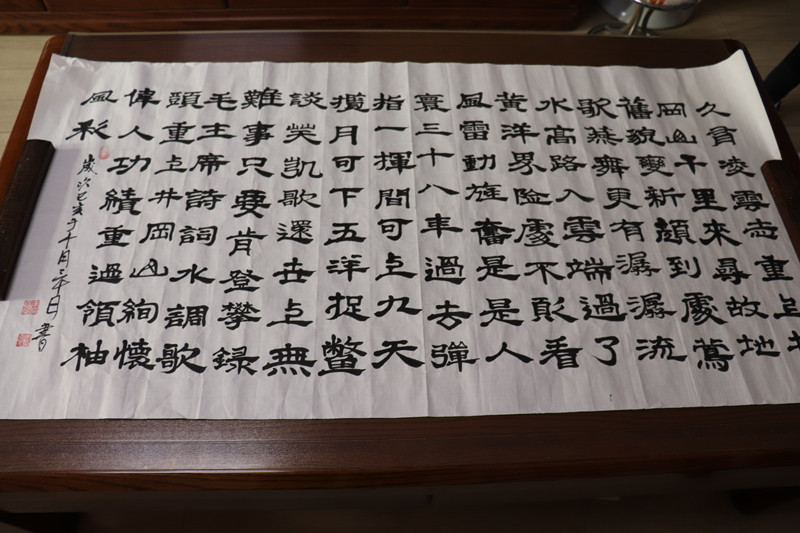 久有凌雲志重上井
岡山千里來尋故地
舊貌變新顏到處鶯
歌燕舞更有潺潺流
水高路入雲端過了
黃洋界險處不須看
風雷動旌奮是是人
寰三十八年過去彈
指一揮間可上九天
攬月可下五洋捉鱉
談笑凱歌還世上無
難事只要肯登攀錄
毛主席詩詞水調歌
頭重上井岡山絢懷
偉人功績重過領袖
風彩
歲次己亥于十月三十日書